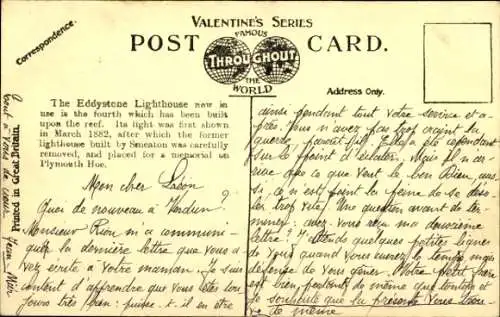 VALENTINE'S SERIES
FAMOUS
POST CARD.
THROUGHOUT
THE
WORLD
Correspondence.
Address Only.
The Eddystone Lighthouse now in
use is the fourth which has been built
upon the reef. Its light was first shown
in March 1882, after which the former
lighthouse built by Smeaton was carefully
removed, and placed for a memorial on
Plymouth Hoe.
Printed in Great Britain.
Mon cher Léon
Quoi de nouveau à Verdun ?
Monsieur Riou m'a communi-
qué la dernière lettre que vous a-
vez écrite à votre maman. Je suis
content d'apprendre que vous êtes tou
jours très bien: puisse-t-il en être
ainsi pendant tout votre service et a-
près. Vous n'avez pas trop craint la
guerre, paraît-il. Elle a été cependant
sur le point d'éclater. Mais il
que ce que veut le bon Dieu,
si, ce n'est point la peine de se déso-
ler trop vite. Une question avant de ter-
miner: avez-vous reçu ma deuxième
lettre? J'attends quelques petites lignes
de vous quand vous aurez le temps
défense de vous gêner. Notre petit frère
est bien portant de même que tonton et
je souhaite que la présente vous trou-
ve de même
à vous de cœur